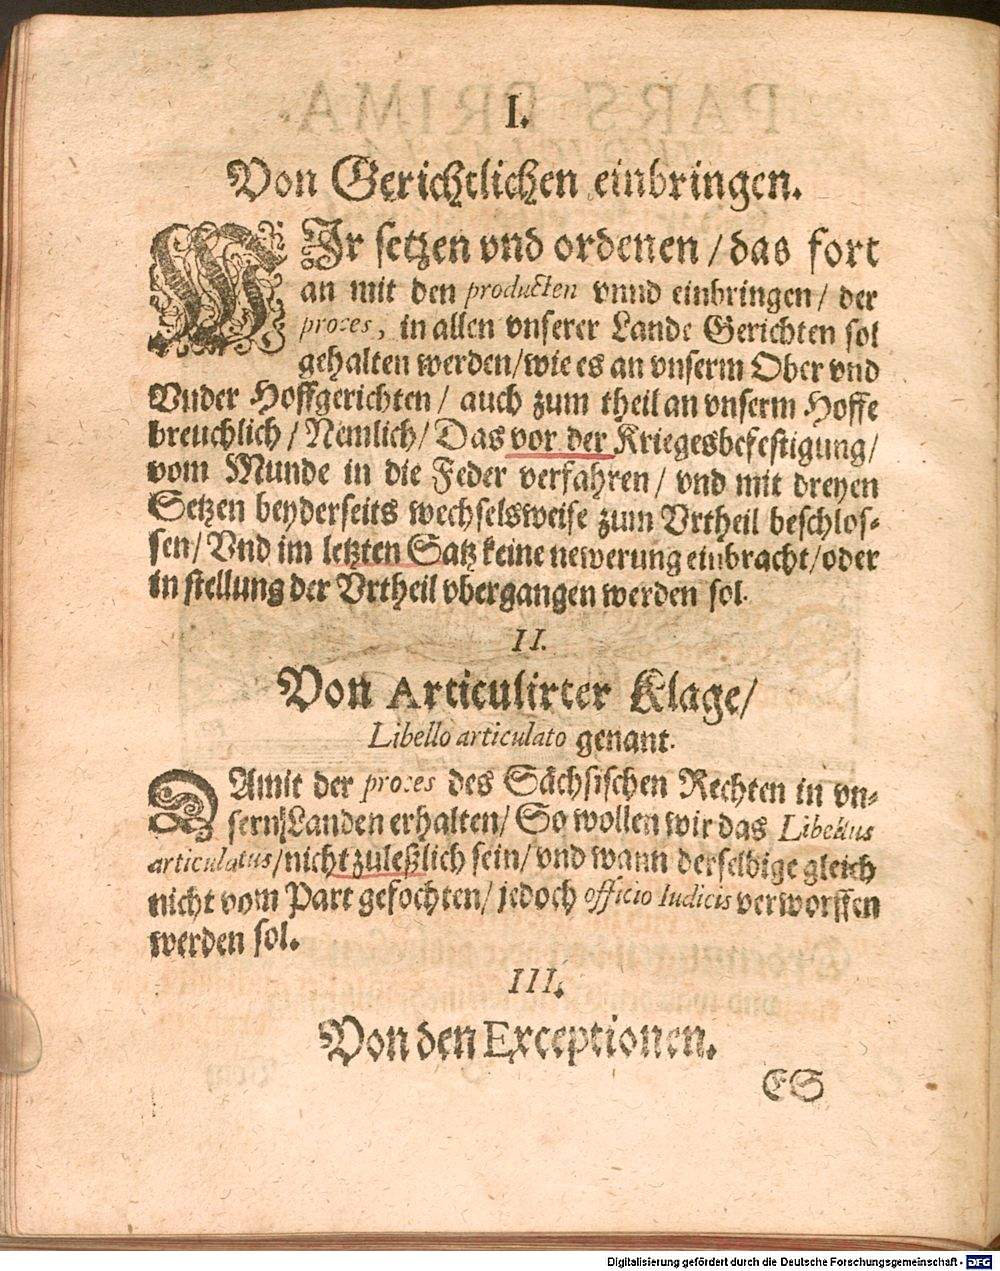 I.
Von Gerichtlichen einbringen.
WIr setzen vnd ordenen / das fort
an mit den producten vnnd einbringen / der
proces, in allen vnserer Lande Gerichten sol
gehalten werden / wie es an vnserm Ober vnd
Vnder Hoffgerichten / auch zum theil an vnserm Hoffe
breuchlich / Nemlich / Das vor der Kriegesbefestigung /
vom Munde in die Feder verfahren / vnd mit dreyen
Setzen beyderseits wechselsweise zum Vrtheil beschlos-
sen / Vnd im letzten Satz keine newerung einbracht / oder
in stellung der Vrtheil vbergangen werden sol.
II.
Von Articulirter Klage /
Libello articulato genant.
DAmit der proces des Sächsischen Rechten in vn-
sern Landen erhalten / So wollen wir das Libellus
articulatus / nicht zuleßlich sein / vnd wann derselbige gleich
nicht vom Part gefochten / jedoch officio Iudicis verworffen
werden sol.
III.
Von den Exceptionen.
ES
Digitalisierung gefördert durch die Deutsche Forschungsgemeinschaft - DFG